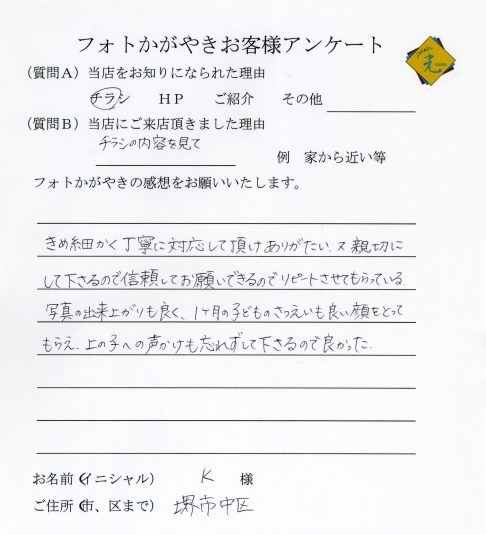 フォトかがやきお客様アンケート
光
(質問A) 当店をお知りになられた理由
チラシ HP ご紹介 その他
(質問B) 当店にご来店頂きました理由
チラシの内容を見て
例 家から近い等
フォトかがやきの感想をお願いいたします。
きめ細かく丁寧に対応して頂けありがたい。又親切に
して下さるので信頼してお願いできるのでリピートさせてもらっている。
写真の出来上がりも良く、1ヶ月の子どものさつえいも良い顔をとって
もらえ、上の子への声かけも忘れずして下さるので良かった。
お名前(イニシャル) K 様
ご住所(市、区まで) 堺市中区